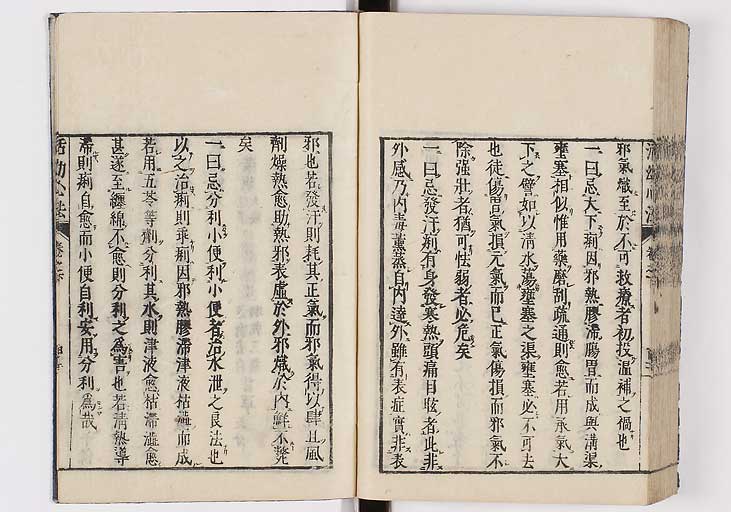 邪氣熾至於不可救療者初投溫補之禍也
一曰忌大下痢因邪熱膠滯腸胃而成與溝渠
壅塞相似惟用藥磨刮疏通則愈若用承氣大
下之譬如以清水蕩壅塞之渠壅塞必不可去
也徒傷胃氣損元氣而已正氣傷損而邪氣不
除强壯者猶可怯弱者必危矣
一曰忌發汗痢有身發寒熱頭痛目眩者此非
外感乃內毒薰蒸自內達外雖有表症實非表
邪也若發汗則耗其正氣而邪氣得以肆且風
劑燥熱愈助熱邪表虛於外邪熾於內鮮不斃
矣
一曰忌分利小便利小便者治水泄之良法也
以之治痢則乖痢因邪熱膠滯津液枯澁而成
若用五苓等劑分利其水則津液愈枯滯澁愈
甚遂至纏綿不愈則分利之為害也若清熱導
滯則痢自愈而小便自利安用分利為哉
活幼心法